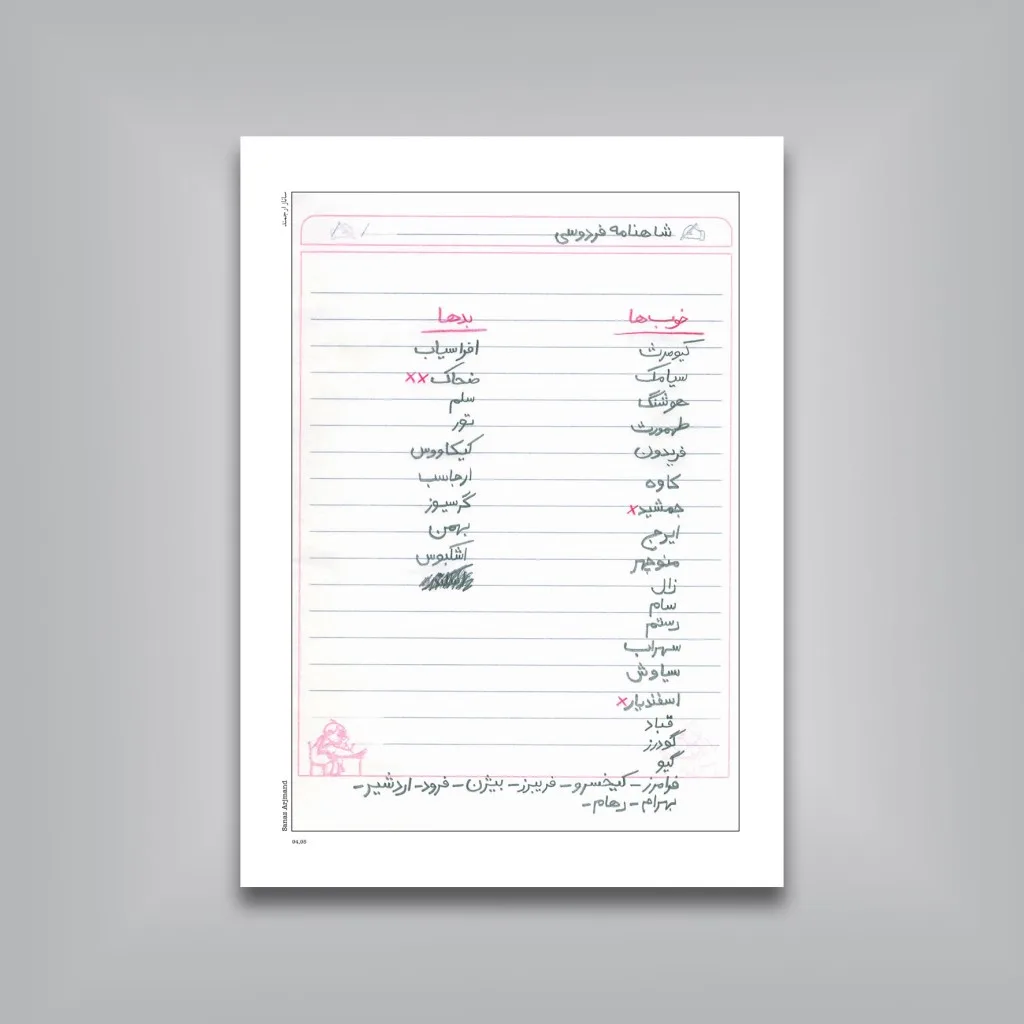 شاهنامه فردوسی /
خوب‌ها
کیومرث
سیامک
هوشنگ
طهمورث
فریدون
کاوه
جمشید x
ایرج
منوچهر
زال
سام
رستم
سهراب
سیاوش
اسفندیار x
قباد
گودرز
گیو
فرامرز – کیخسرو – فریبرز – بیژن – فرود – اردشیر –
بهرام – رهام –
بدها
افراسیاب
ضحاک xx
سلم
تور
کیکاووس
ارجاسب
گرسیوز
بهمن
اشکبوس
ساناز ارجمند
Sanaz Arjmand